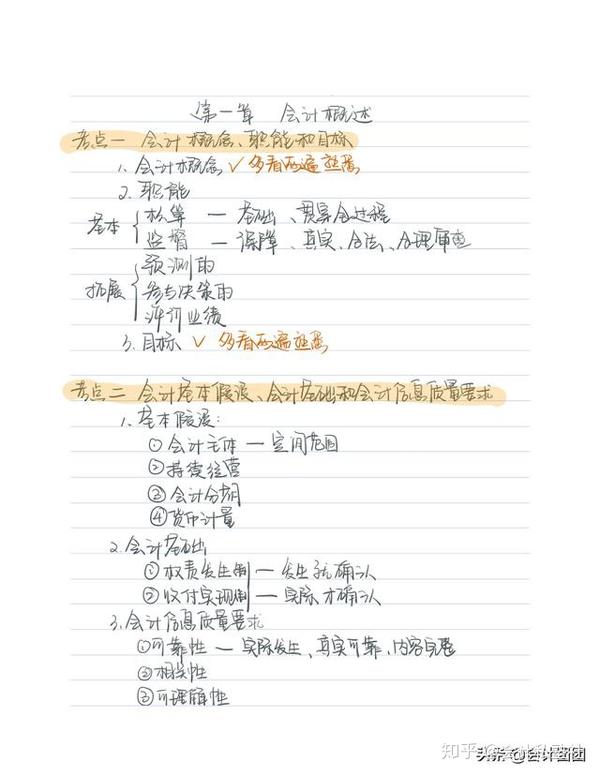 第一章 会计概述
考点一 会计概念、职能和目标
1. 会计概念 ✓ 多看两遍就会
2. 职能
基本 { 核算 — 基础、贯穿全过程
监督 — 保障、真实、合法、合理审查
拓展 { 预测的
参与决策的
评价业绩
3. 目标 ✓ 多看两遍就会
考点二 会计基本假设、会计基础和会计信息质量要求
1. 基本假设:
①会计主体 — 空间范围
②持续经营
③会计分期
④货币计量
2. 会计基础
①权责发生制 — 发生就确认
②收付实现制 — 实际才确认
3. 会计信息质量要求
①可靠性 — 实际发生、真实可靠、内容完整
②相关性
③可理解性
知乎
头条 @会计番团